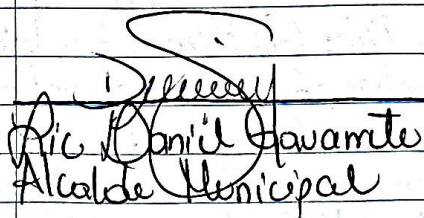 Lic Daniel Navarrete
Alcalde Municipal